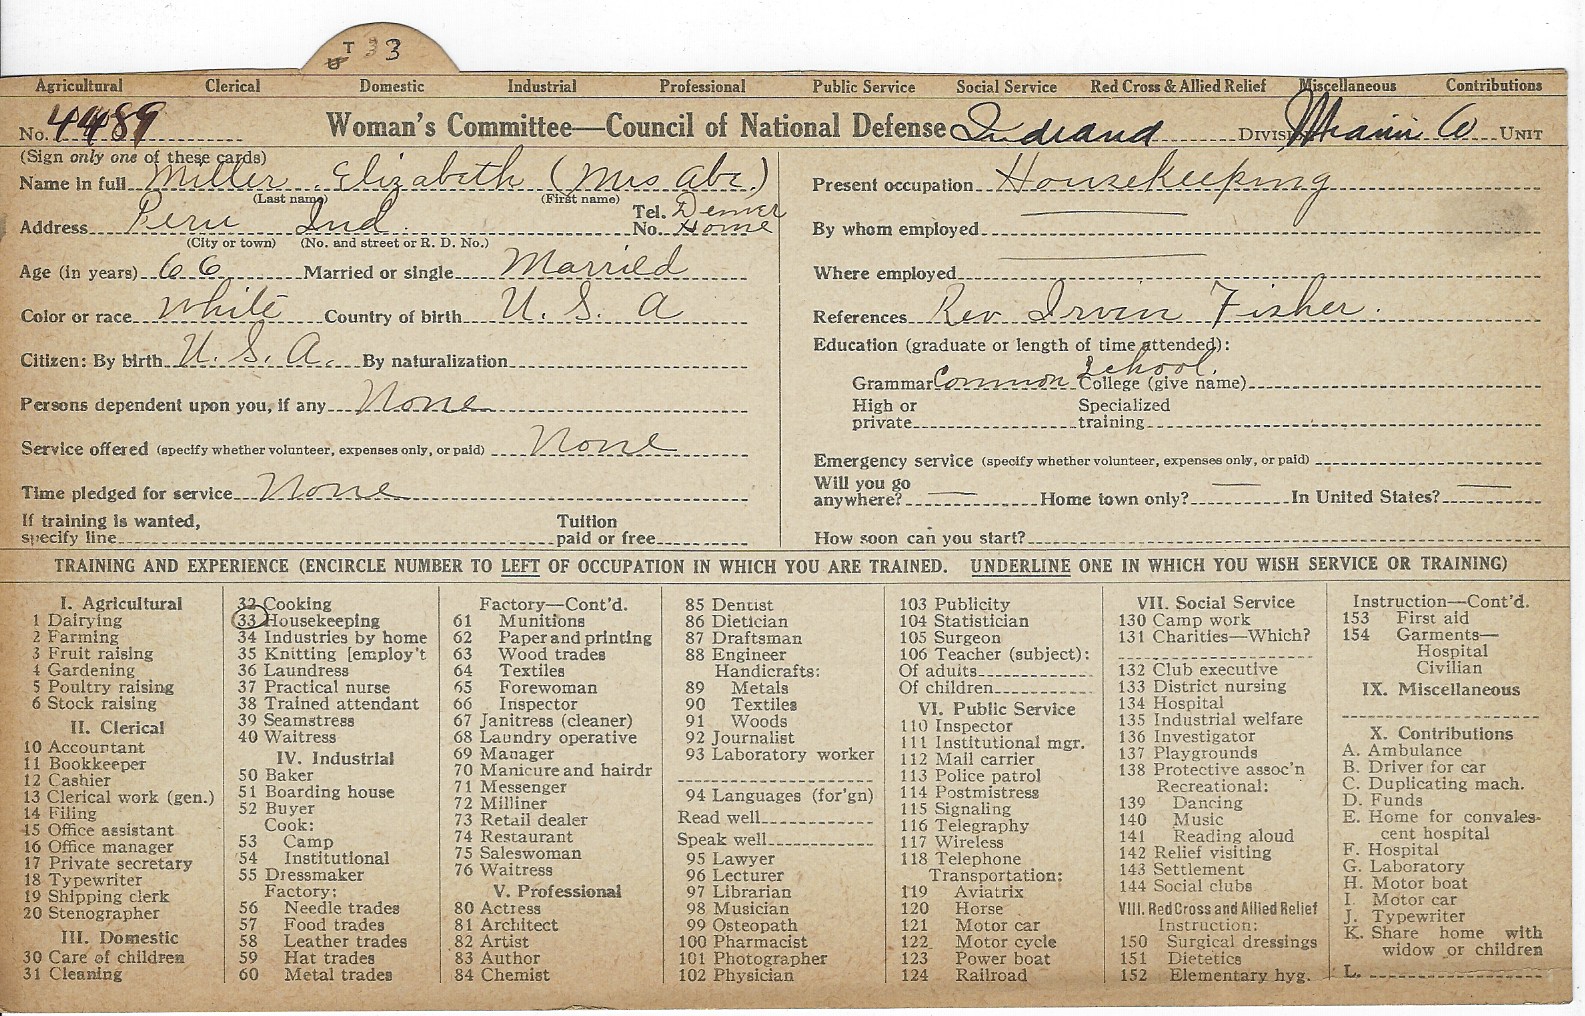 T 33
Agricultural Clerical Domestic Industrial Professional Public Service Social Service Red Cross & Allied Relief Miscellaneous Contributions
No. 4489 Woman's Committee—Council of National Defense Indiana DIVISION Miami Co UNIT
(Sign only one of these cards)
Name in full Miller Elizabeth (Mrs Abe.)
(Last name) (First name)
Address Peru Ind. Tel. No. Denver Home
(City or town) (No. and street or R. D. No.)
Age (in years) 66 Married or single Married
Color or race White Country of birth U. S. A
Citizen: By birth U. S. A. By naturalization
Persons dependent upon you, if any None
Service offered (specify whether volunteer, expenses only, or paid) None
Time pledged for service None
If training is wanted, specify line Tuition paid or free
Present occupation Housekeeping
By whom employed
Where employed
References Rev Irvin Fisher.
Education (graduate or length of time attended):
Grammar Common School. College (give name)
High or private Specialized training
Emergency service (specify whether volunteer, expenses only, or paid)
Will you go anywhere? Home town only? In United States?
How soon can you start?
TRAINING AND EXPERIENCE (ENCIRCLE NUMBER TO LEFT OF OCCUPATION IN WHICH YOU ARE TRAINED. UNDERLINE ONE IN WHICH YOU WISH SERVICE OR TRAINING)
I. Agricultural
1 Dairying
2 Farming
3 Fruit raising
4 Gardening
5 Poultry raising
6 Stock raising
II. Clerical
10 Accountant
11 Bookkeeper
12 Cashier
13 Clerical work (gen.)
14 Filing
15 Office assistant
16 Office manager
17 Private secretary
18 Typewriter
19 Shipping clerk
20 Stenographer
III. Domestic
30 Care of children
31 Cleaning
32 Cooking
33 Housekeeping
34 Industries by home
35 Knitting [employ't
36 Laundress
37 Practical nurse
38 Trained attendant
39 Seamstress
40 Waitress
IV. Industrial
50 Baker
51 Boarding house
52 Buyer
Cook:
53 Camp
54 Institutional
55 Dressmaker
Factory:
56 Needle trades
57 Food trades
58 Leather trades
59 Hat trades
60 Metal trades
Factory—Cont'd.
61 Munitions
62 Paper and printing
63 Wood trades
64 Textiles
65 Forewoman
66 Inspector
67 Janitress (cleaner)
68 Laundry operative
69 Manager
70 Manicure and hairdr
71 Messenger
72 Milliner
73 Retail dealer
74 Restaurant
75 Saleswoman
76 Waitress
V. Professional
80 Actress
81 Architect
82 Artist
83 Author
84 Chemist
85 Dentist
86 Dietician
87 Draftsman
88 Engineer
Handicrafts:
89 Metals
90 Textiles
91 Woods
92 Journalist
93 Laboratory worker
94 Languages (for'gn)
Read well
Speak well
95 Lawyer
96 Lecturer
97 Librarian
98 Musician
99 Osteopath
100 Pharmacist
101 Photographer
102 Physician
103 Publicity
104 Statistician
105 Surgeon
106 Teacher (subject):
Of adults
Of children
VI. Public Service
110 Inspector
111 Institutional mgr.
112 Mail carrier
113 Police patrol
114 Postmistress
115 Signaling
116 Telegraphy
117 Wireless
118 Telephone
Transportation:
119 Aviatrix
120 Horse
121 Motor car
122 Motor cycle
123 Power boat
124 Railroad
VII. Social Service
130 Camp work
131 Charities—Which?
132 Club executive
133 District nursing
134 Hospital
135 Industrial welfare
136 Investigator
137 Playgrounds
138 Protective assoc'n
Recreational:
139 Dancing
140 Music
141 Reading aloud
142 Relief visiting
143 Settlement
144 Social clubs
VIII. Red Cross and Allied Relief
Instruction:
150 Surgical dressings
151 Dietetics
152 Elementary hyg.
Instruction—Cont'd.
153 First aid
154 Garments—
Hospital
Civilian
IX. Miscellaneous
X. Contributions
A. Ambulance
B. Driver for car
C. Duplicating mach.
D. Funds
E. Home for convales-
cent hospital
F. Hospital
G. Laboratory
H. Motor boat
I. Motor car
J. Typewriter
K. Share home with
widow or children
L.